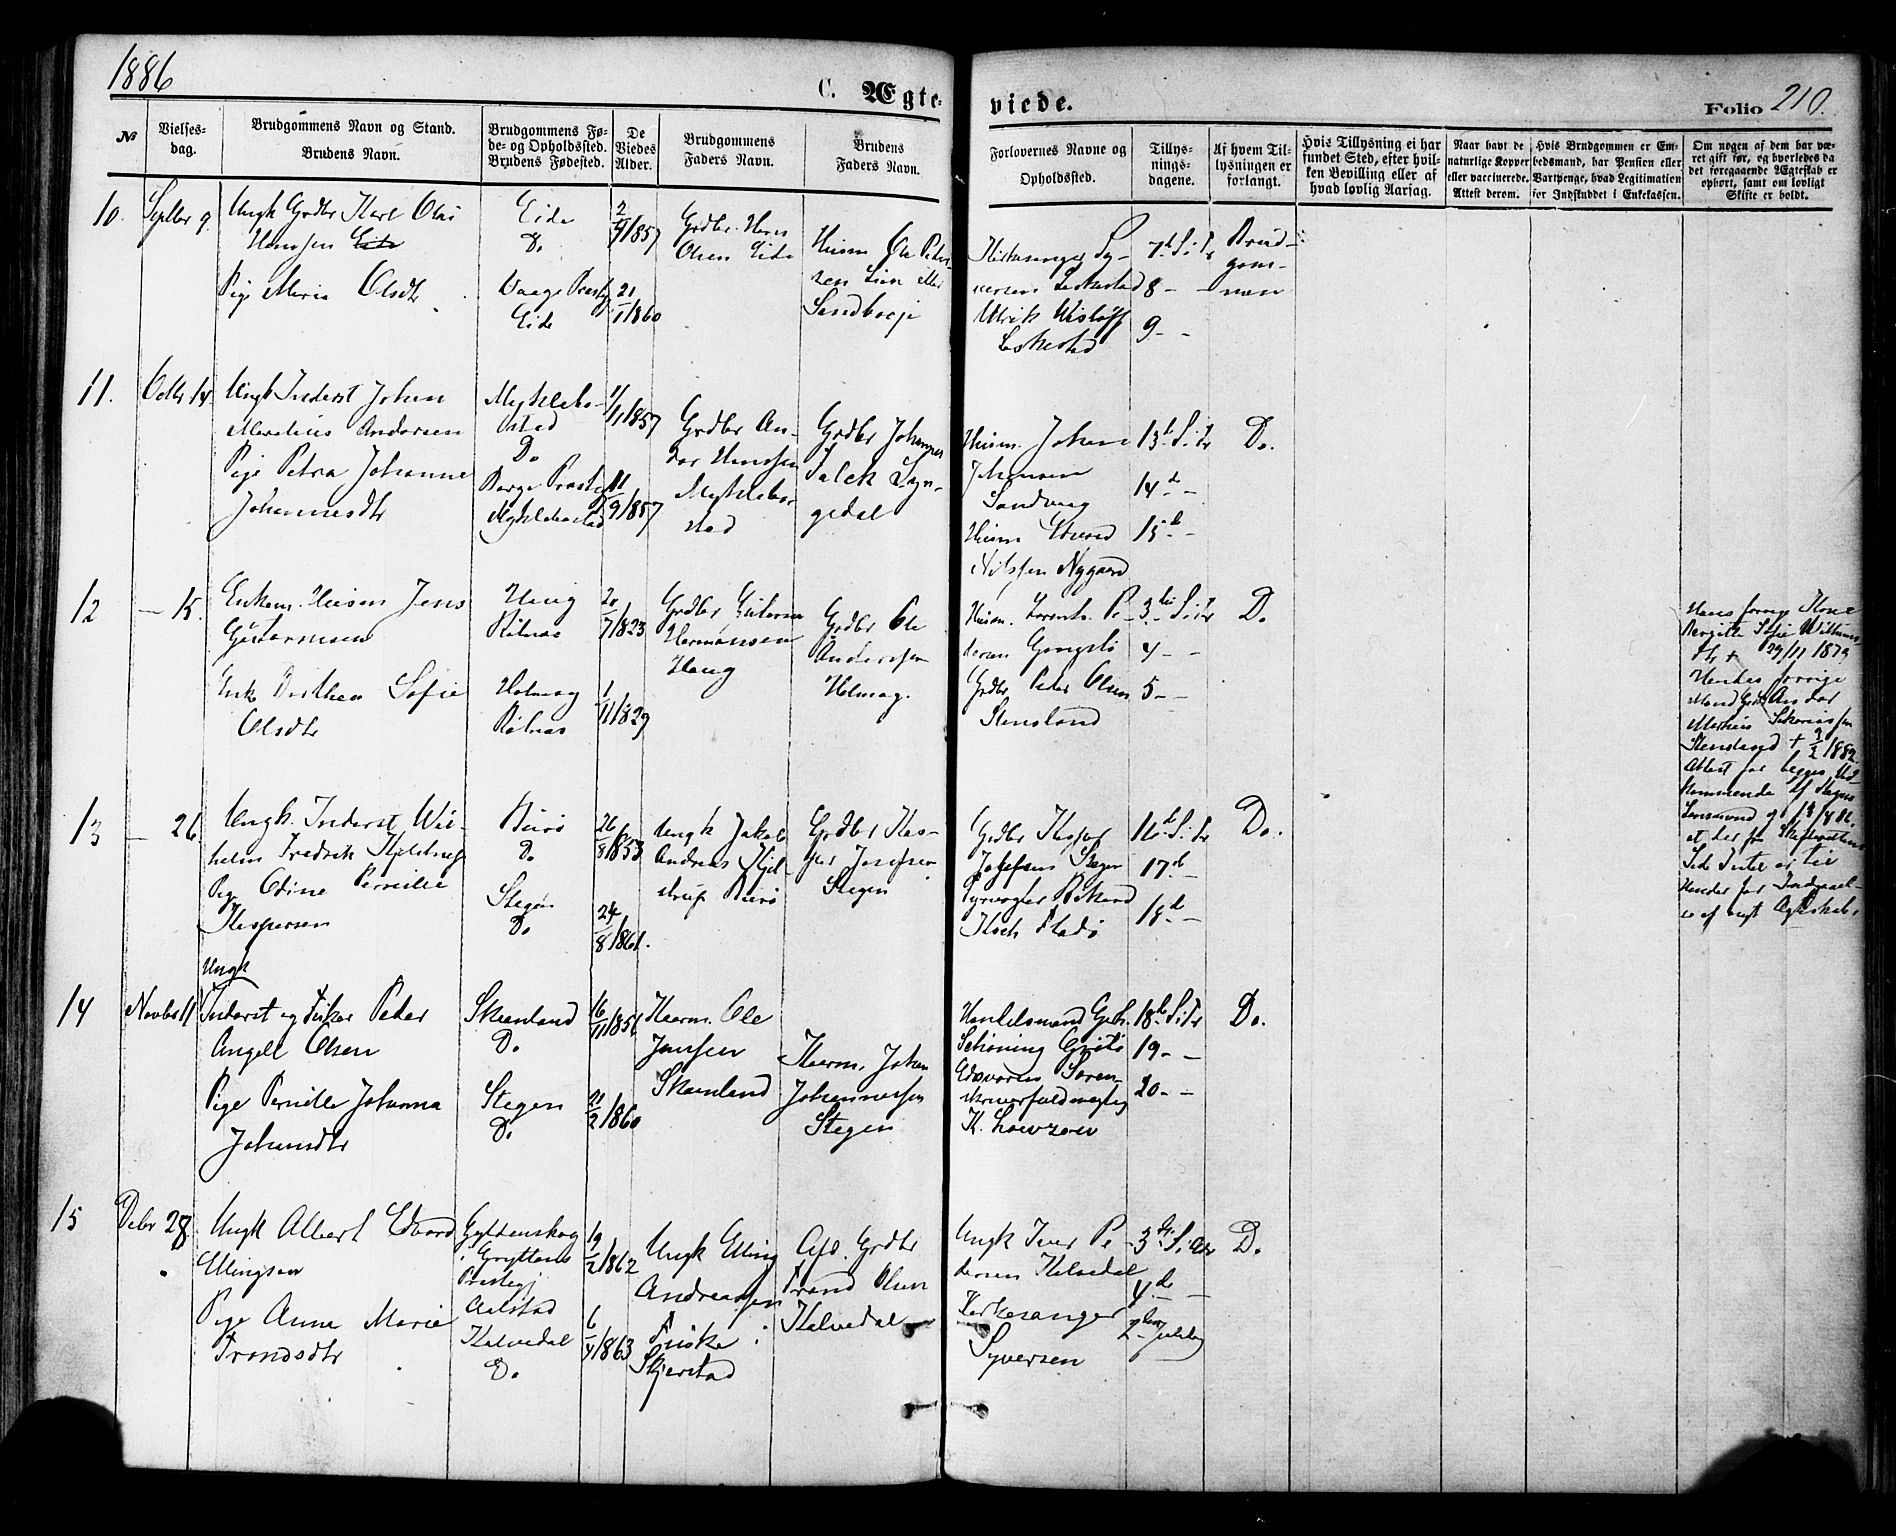 1886
C. Ægteviede.
Folio 210.
№
Vielses-
dag.
Brudgommens Navn og Stand.
Brudens Navn.
Brudgommens Fø-
de- og Opholdssted.
Brudens Fødested.
De
Viedes
Alder.
Brudgommens
Faders Navn.
Brudens
Faders Navn.
Forlovernes Navne og
Opholdssted.
Tillys-
nings-
dagene.
Af hvem Til-
lysningen er
forlangt.
Hvis Tillysning ei har
fundet Sted, efter hvil-
ken Bevilling eller af
hvad lovlig Aarsag.
Naar havt de
naturlige Kopper
eller vaccinerede.
Attest derom.
Hvis Brudgommen er Em-
bedsmand, har Pension eller
Vartpenge, hvad Legitimation
for Indskuddet i Enkekassen.
Om nogen af dem har væ-
ret gift før, og hvorledes da
det foregaaende Ægteskab er
ophørt, samt om lovligt
Skifte er holdt.
10.
Septbr 9.
Ungk Grdbr Karl Olai
Hansen Eide
Pige Maria Olsdtr
Eide
Do
Vaage Præstgj
Eide
2/9 1857
21/1 1860
Grdbr. Hans
Olsen Eide
Husm Ole Peder-
sen Lien eller
Sandboeje
Kirkesanger Sy-
versen Leskestad
Ulrik Wisløff
Leskestad
7de S.e.Tr
8 - -
9 - -
Brud-
gom-
men
11.
Octbr 14.
Ungk Inderst Johan
Marelius Andersen
Pige Petra Johanna
Johannesdtr
Myklebo-
stad
Do
Borge Præstgj
Myklebostad
11/11 1857
11/9 1857
Grdbr An-
dor Hanssen
Myklebo-
stad
Grdbr Johannes
Falck Lyn-
gedal
Husm. Johan
Johansen
Sandvaag
Husm Edvard
Nilssen Nygaard
13de S.e.Tr
14de -
15de -
Do.
12
— 15.
Enkem. Husm Jens
Gustavnsen
Enke Dorthea Sofie
Olsdtr
Haug
Rølnas
Holmag
Rølnas
20/7 1823
1/11 1829
Grdbr Gustavn
Hermansen
Haug
Grdbr Ole
Anderssen
Holmag.
Husm. Lorents Pe-
dersen Gongstø
Grdbr Peder Olsen
Stensland
3die S.e.Tr
4 - -
5 - -
Do
Hans forrige Kone
Birgitte Sofie Willums-
dtr + 29/11 1879
Hendes forrige
Mand Grdbr Andor
Martin Sakariassen
Stensland + 2/2 1882
13
— 26
Ungk. Inderst Wil-
helm Fredrik Kjelstrup
Pige Odine Pernille
Kaspersen
Burø
Do
Stegen
Do
26/8 1853
24/8 1861.
Ungk Jakob
Andreas Kjel-
strup Burø
Grdbr Kas-
per Josefsen
Stegen
Grdbr Kasper
Josefsen Stegen
Fyrvogter Rikard
Koch Fladø
16de S.e.Tr
17de -
18de -
Do.
14
Novbr 11
Ungk
Inderst og Fisker Peder
Angell Olsen
Pige Pernille Johanna
Johansdtr
Skaanland
Do
Stegen
Do
16/11 1856
20/2 1860
Husm. Ole
Janssen
Skaanland
Husm. Johan
Johannessen
Stegen
Handelsmand Geh.
Schøning Grøtø
Soren-
skriverfuldmægtig
K. Lowzow
18de S.e.Tr
19 - -
20 - -
Do.
15
Debr 28
Ungk Albert Edvard
Ellingsen
Pige Anne Marie
Trondsdtr
Gyltenskog
i Gryttens
Præstegj
Aalstad
Kalvedal
Do
19/2 1862
6/4 1863
Ungk Elling
Andreassen
Fuiske i
Skjerstad
Afd. Grdbr
Trond Olsen
Kalvedal
Ungk Iver Pe-
dersen Kalvedal
Kirkesanger
Syversen
3die S. i Adv
4de -
2den Juledag
Do